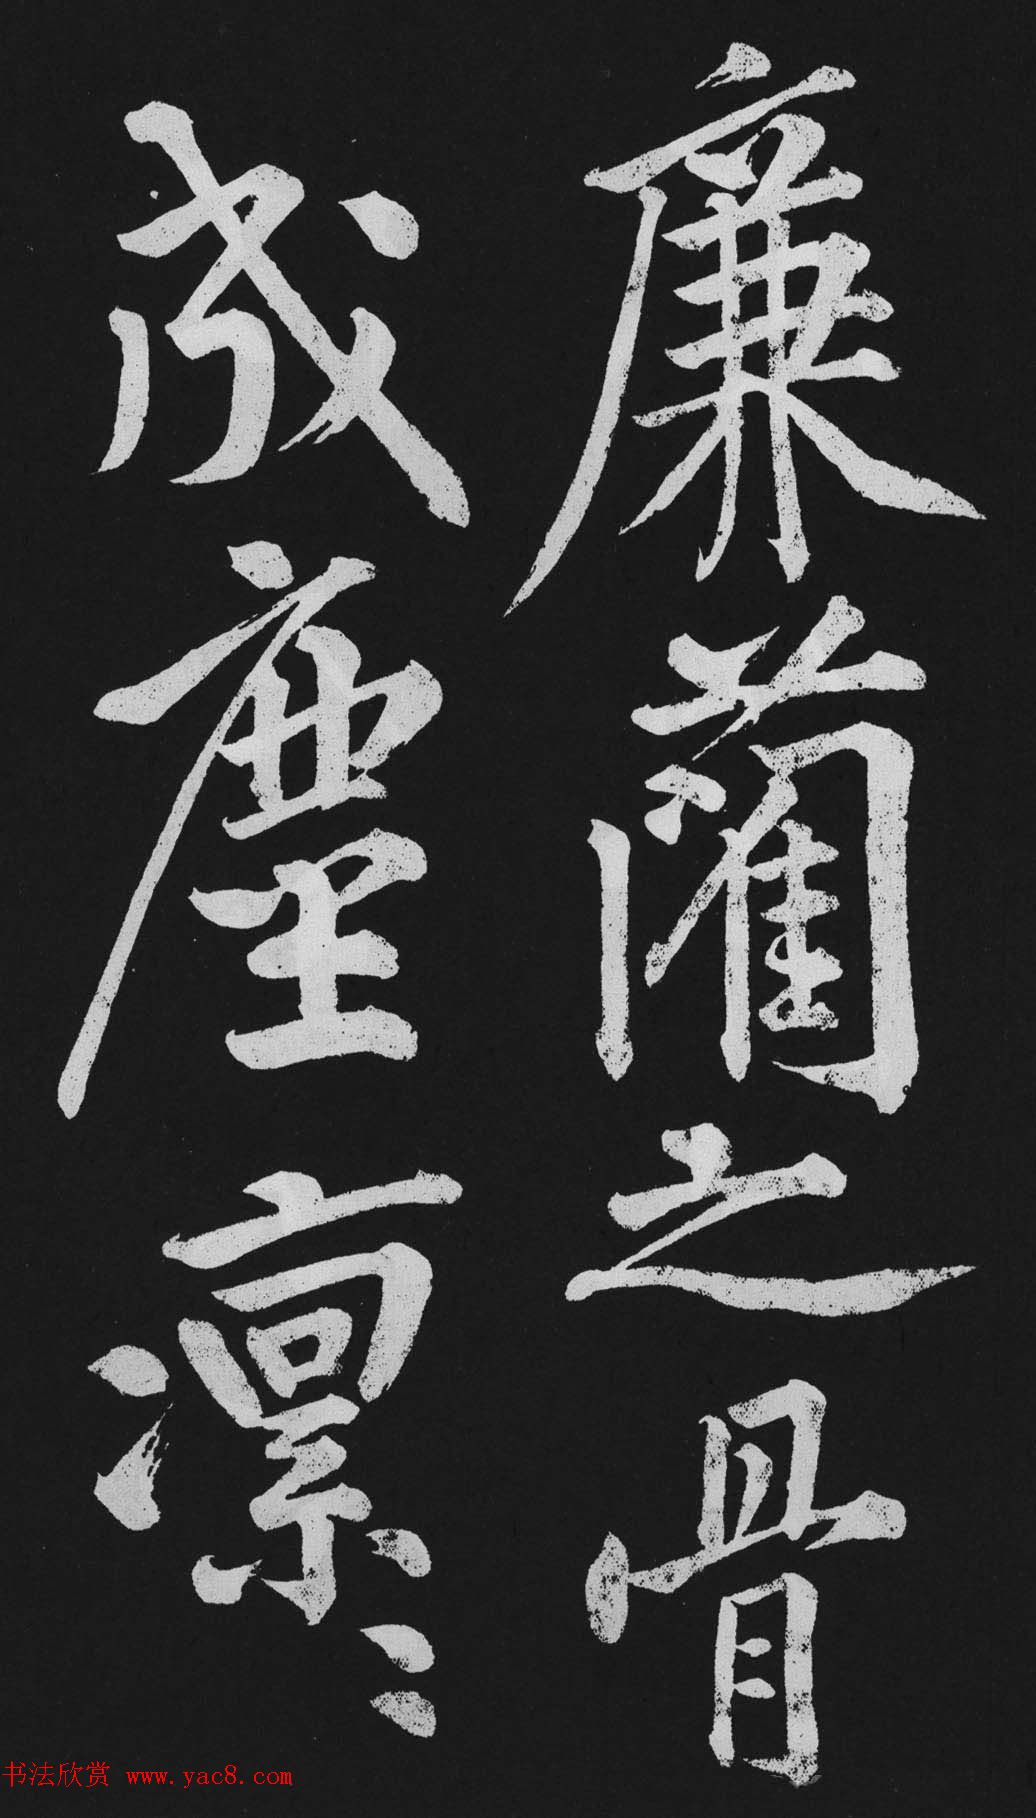 廉藺之骨
成塵凛〻
书法欣赏 www.yac8.com